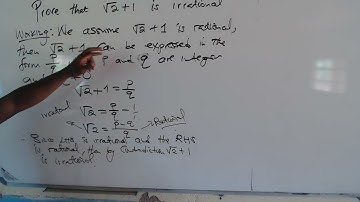 Prove that √2 + 1 is irrational
Working: We assume √2 + 1 is rational,
then √2 + 1 can be expressed in the
form p/q p and q are integers
and
√2 + 1 = p/q
irrational √2 = p/q - 1
√2 = p-q/q → Rational
- Since LHS is irrational and the RHS
is rational, then by Contradiction √2 + 1
is irrational